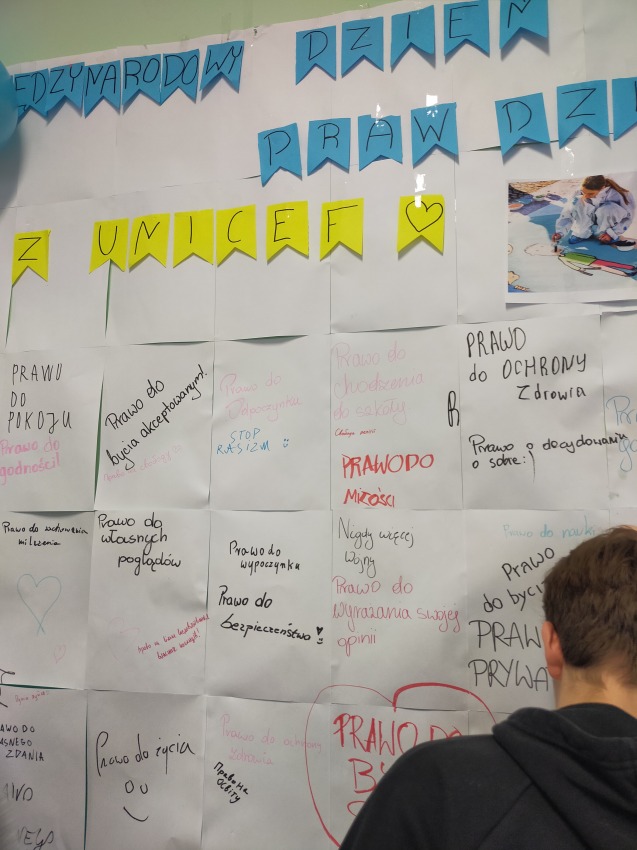 ĘDZYNARODOWY DZIEŃ
PRAW DZI
Z UNICEF
PRAWO
DO
POKOJU
Prawo do
godności!
Prawo do
bycia akceptowanym!
Prawo do
Odpoczynku
STOP
RASIZM
Prawo do
chodzenia
do szkoły
PRAWO DO
MIŁOŚCI
PRAWO
do OCHRONY
Zdrowia
Prawo o decydowaniu
o sobie:)
Prawo do zachowania
milczenia
Prawo do
własnych
poglądów
Prawo do
wypoczynku
Prawo do
bezpieczeństwo
Nigdy więcej
Wojny
Prawo do
wyrażania swojej
opinii
Prawo do nauki
Prawo
do byci
PRAW
PRYWA
AWO DO
ASNEGO
ZDANIA
Prawo do życia
Prawo do ochrony
zdrowia
Право на
освіту
PRAWO DO